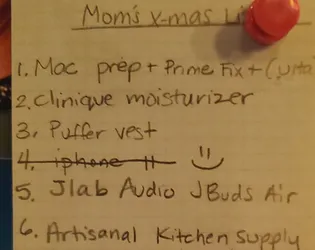 Mom's x-mas Li
1. Mac prep + Prime Fix + (ulta
2. Clinique moisturizer
3. Puffer vest
4. iphone 11
5. Jlab Audio JBuds Air
6. Artisanal Kitchen Supply